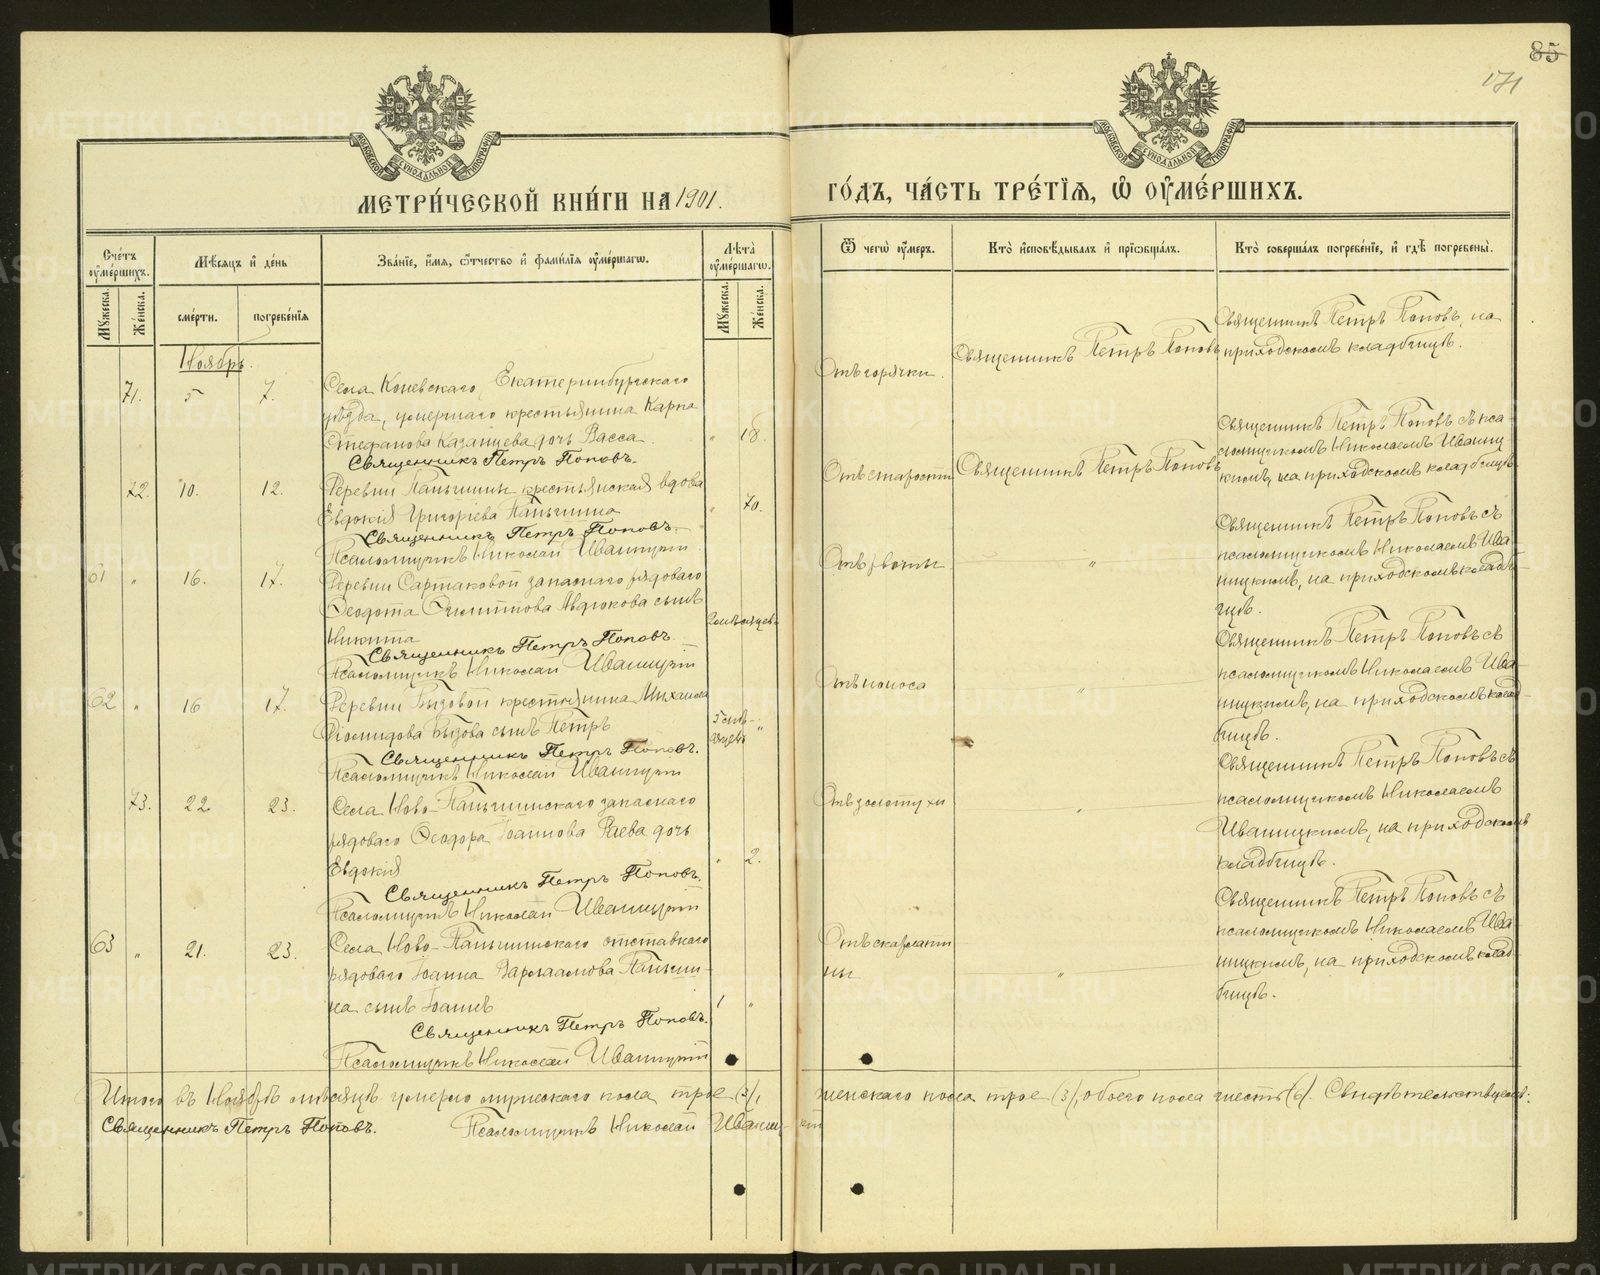 85
171
МЕТРИ́ЧЕСКОЙ КНИ́ГИ НА 1901.
ГО́ДЪ, ЧА́СТЬ ТРЕ́ТІѦ, Ѿ ОУ҆МЕ́РШИХЪ.
Сче́тъ оу҆ме́ршихъ.
Мꙋ́жеска.
Же́нска.
Мѣ́сяцъ и҆ де́нь
сме́рти.
погребе́нія
Зва́ніе, и҆́мя, ѻ҆́тчество и҆ фами́лія оу҆ме́ршагѡ.
Лѣ́та оу҆ме́ршагѡ.
Мꙋ́жеска.
Же́нска.
Ѿ чегѡ̀ оу҆́меръ.
Кто̀ и҆сповѣ́дывалъ и҆ прїѡбща́лъ.
Кто̀ соверша́лъ погребе́ніе, и҆ гдѣ̀ погребены̀.
Ноябрь.
71. 5 7.
Села Коневскаго, Екатеринбургскаго
уѣзда, умершаго крестьянина Карпа
Стефанова Казанцева дочь Васса. " 18.
Священникъ Петръ Поповъ.
Отъ горячки.
Священникъ Петръ Поповъ
Священникъ Петръ Поповъ, на
приходскомъ кладбищѣ.
72. 10. 12.
Деревни Паньшины крестьянская вдова
Евдокія Григоріева Паньшина " 70.
Священникъ Петръ Поповъ.
Псаломщикъ Николай Иваницкій
Отъ старости
Священникъ Петръ Поповъ
Священникъ Петръ Поповъ съ пса-
ломщикомъ Николаемъ Иваниц
кимъ, на приходскомъ кладбищѣ
61 " 16. 17.
Деревни Сартаковой запаснаго рядоваго
Ѳеодота Авдюкова сынъ
Никита 2 мѣсяцевъ
Священникъ Петръ Поповъ
Псаломщикъ Николай Иваницкій
Отъ рвоты
"
Священникъ Петръ Поповъ съ
псаломщикомъ Николаемъ Ива-
ницкимъ, на приходскомъ кладб-
ищѣ.
62 " 16 17.
Деревни Вызовой крестьянина Михаила
Діомидова Вызова сынъ Петръ мѣ- сяцевъ "
Священникъ Петръ Поповъ.
Псаломщикъ Николай Иваницкій
Отъ поноса
"
Священникъ Петръ Поповъ съ
псаломщикомъ Николаемъ Ива-
ницкимъ, на приходскомъ клад-
бищѣ.
73. 22 23.
Села Ново-Паньшинскаго запаснаго
рядоваго Ѳеодора Іоаннова Раева дочь
Евдокія " 2.
Священникъ Петръ Поповъ.
Псаломщикъ Николай Иваницкій
Отъ золотухи
"
Священникъ Петръ Поповъ съ
псаломщикомъ Николаемъ
Иваницкимъ, на приходскомъ
кладбищѣ.
63 " 21. 23.
Села Ново-Паньшинскаго отставнаго
рядоваго Іоанна Варлаамова Паньши-
на сынъ Іоаннъ 1 "
Священникъ Петръ Поповъ.
Псаломщикъ Николай Иваницкій
Отъ скарлати
ны
"
Священникъ Петръ Поповъ съ
псаломщикомъ Николаемъ Ива-
ницкимъ, на приходскомъ клад-
бищѣ.
Итого въ Ноябрѣ мѣсяцѣ умерло мужескаго пола трое (3), женскаго пола трое (3), обоего пола шесть (6). Свидѣтельствуемъ:
Священникъ Петръ Поповъ. Псаломщикъ Николай Иваницкій